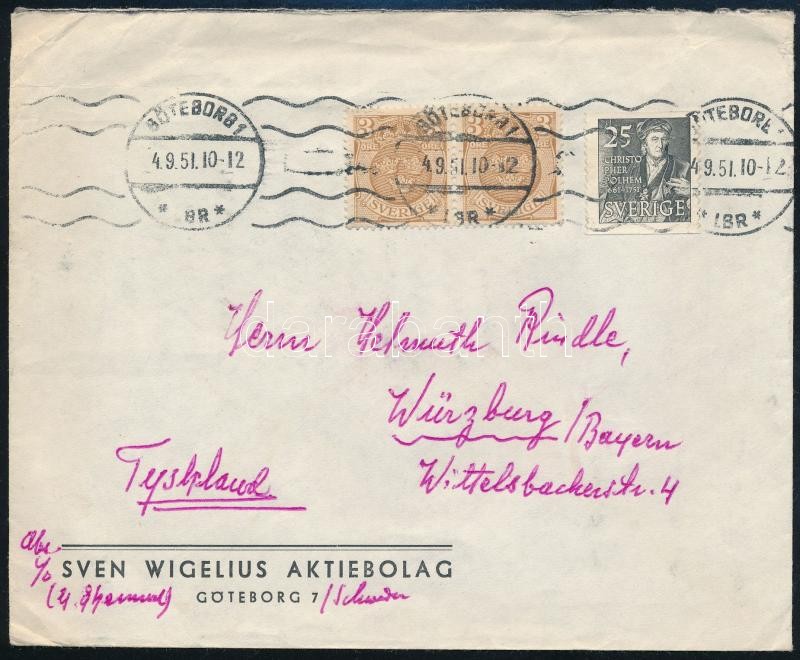 GÖTEBORG 1
4.9.51.10-12
* LBR *
3 3
ÖRE
SVERIGE
3 3
ÖRE
SVERIGE
GÖTEBORG 1
4.9.51.10-12
* LBR *
25
CHRISTO
PHER
POLHEM
1661 1751
SVERIGE
GÖTEBORG 1
4.9.51.10-12
* LBR *
darabanth
Herrn Helmuth Rindle,
Würzburg/Bayern
Wittelsbacherstr. 4
Tyskland
Abs.
c/o SVEN WIGELIUS AKTIEBOLAG
GÖTEBORG 7/Schweden